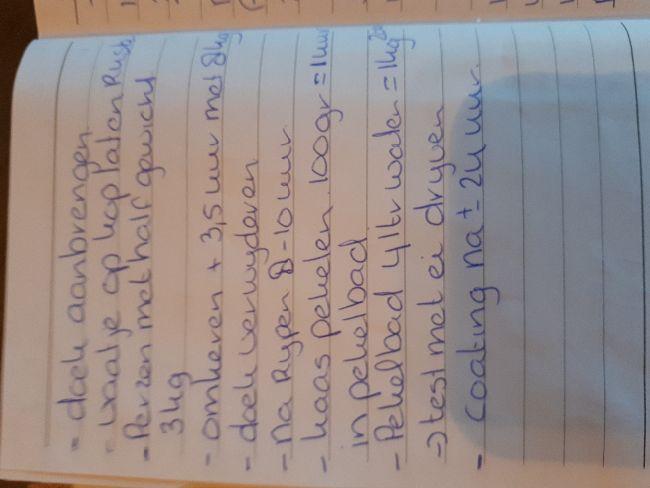 - doek aanbrengen
- vaatje op kop laten Rusten
- Persen met half gewicht
3 kg
- omkeren + 3,5 uur met 8kg
- doek verwyderen
- na Rypen 8-10 uur.
- kaas pekelen. 100gr = 1 uur
in pekelbad
- Pekelbad 4 ltr water = 1kg
→ test met ei dryven
- coating na ± 24 uur.